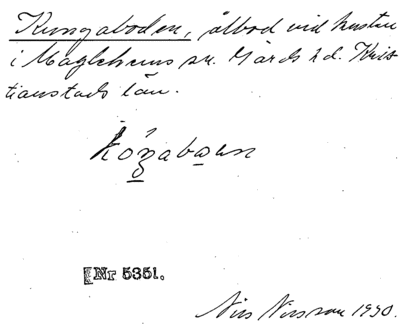 Kungaboden, ålbod vid kusten
i Maglehems sn. Gärds hd. Kris-
tianstads län.
[Nr 5351.
Nils Nilsson 1930.